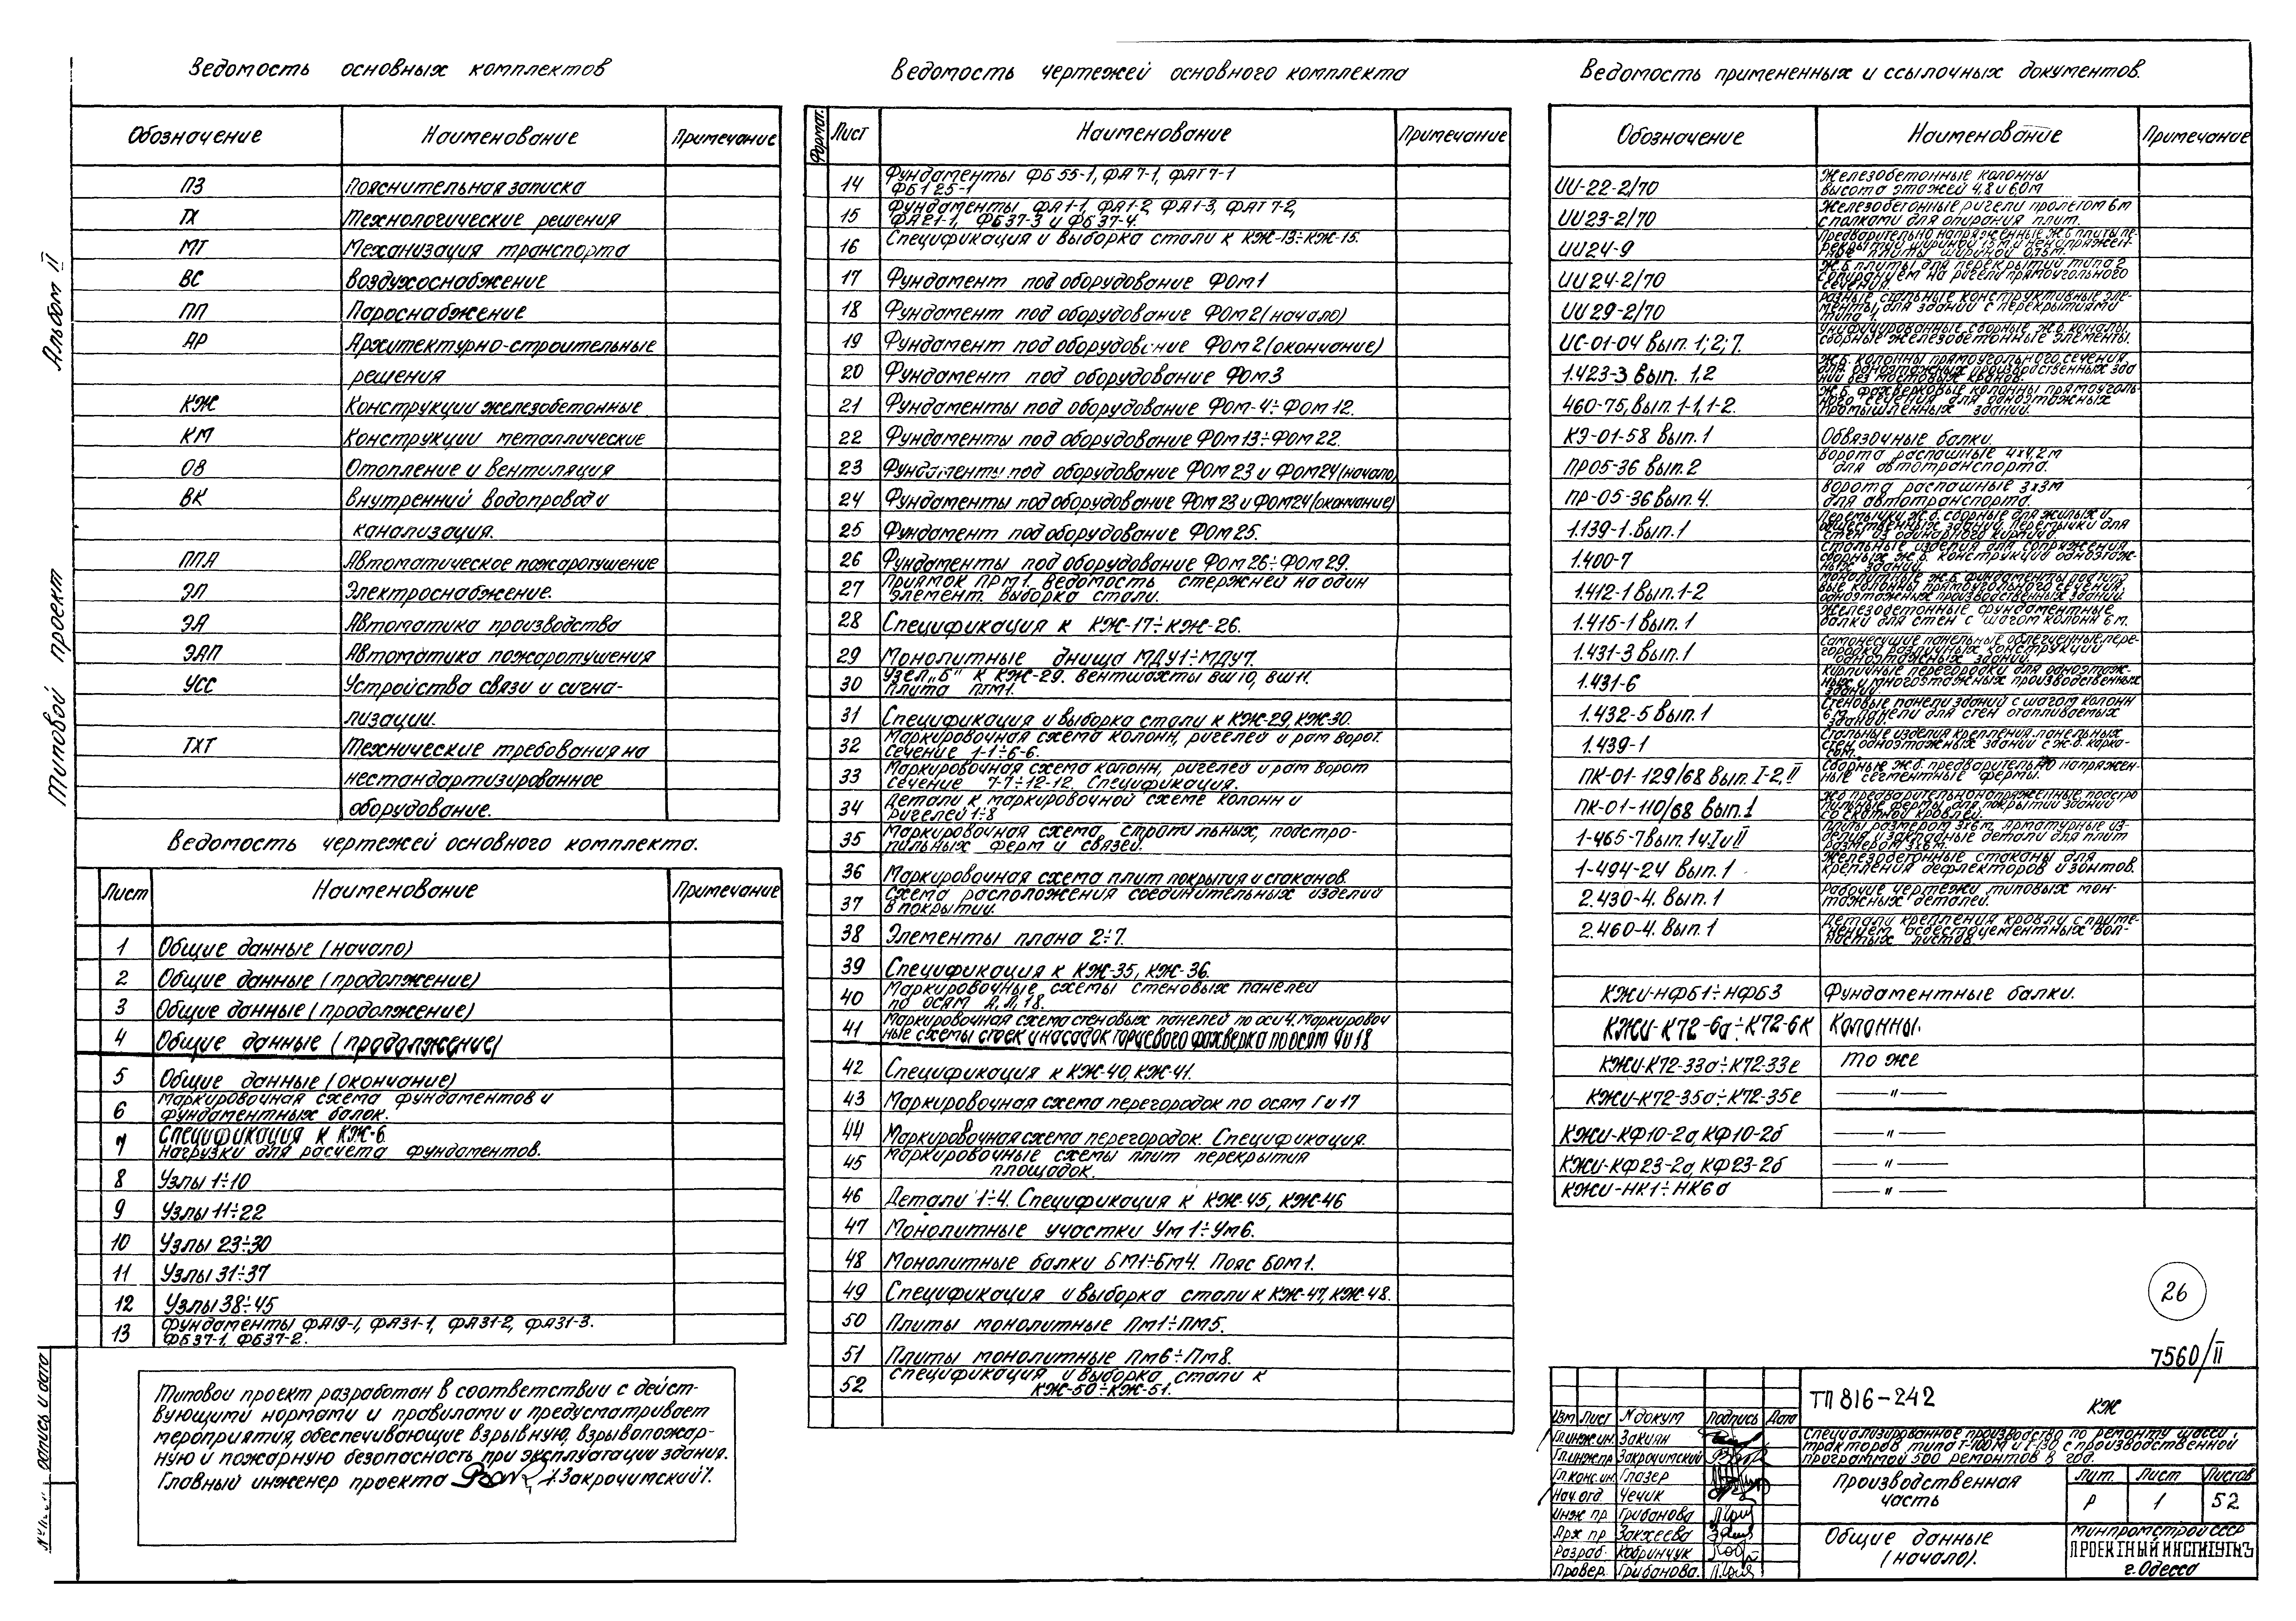 Ведомость основных комплектов
Обозначение Наименование Примечание
ПЗ Пояснительная записка
ТХ Технологические решения
МТ Механизация транспорта
ВС Воздухоснабжение
ПП Пароснабжение
АР Архитектурно-строительные
решения
КЖ Конструкции железобетонные
КМ Конструкции металлические
ОВ Отопление и вентиляция
ВК Внутренний водопровод и
канализация.
ППА Автоматическое пожаротушение
ЭЛ Электроснабжение.
ЭА Автоматика производства
ЭАП Автоматика пожаротушения
УСС Устройства связи и сигна-
лизации.
ТХТ Технические требования на
нестандартизированное
оборудование.
Ведомость чертежей основного комплекта.
Лист Наименование Примечание
1 Общие данные (начало)
2 Общие данные (продолжение)
3 Общие данные (продолжение)
4 Общие данные (продолжение)
5 Общие данные (окончание)
6 Маркировочная схема фундаментов и
фундаментных балок.
7 Спецификация к КЖ-6.
Нагрузки для расчета фундаментов.
8 Узлы 1÷10
9 Узлы 11÷22
10 Узлы 23÷30
11 Узлы 31÷37
12 Узлы 38÷45
13 Фундаменты ФА19-1, ФА31-1, ФА31-2, ФА31-3.
ФБ37-1, ФБ37-2.
Типовой проект разработан в соответствии с дейст-
вующими нормами и правилами и предусматривает
мероприятия, обеспечивающие взрывную, взрывопожар-
ную и пожарную безопасность при эксплуатации здания.
Главный инженер проекта /Закрочимский/.
Ведомость чертежей основного комплекта
Формат. Лист Наименование Примечание
14 Фундаменты ФБ55-1, ФА7-1, ФАТ7-1
ФБ125-1
15 Фундаменты ФА1-1, ФА1-2, ФА1-3, ФАТ7-2,
ФА21-1, ФБ37-3 и ФБ37-4.
16 Спецификация и выборка стали к КЖ-13÷КЖ-15.
17 Фундамент под оборудование ФОм1
18 Фундамент под оборудование ФОм2 (начало)
19 Фундамент под оборудование ФОм2 (окончание)
20 Фундамент под оборудование ФОм3
21 Фундаменты под оборудование ФОм-4÷ФОм12.
22 Фундаменты под оборудование ФОм13÷ФОм22.
23 Фундаменты под оборудование ФОм23 и ФОм24 (начало)
24 Фундаменты под оборудование ФОм23 и ФОм24 (окончание)
25 Фундамент под оборудование ФОм25.
26 Фундаменты под оборудование ФОм26÷ФОм29.
27 Приямок ПРм1. Ведомость стержней на один
элемент. Выборка стали.
28 Спецификация к КЖ-17÷КЖ-26.
29 Монолитные днища МДУ1÷МДУ7.
30 Узел „Б" к КЖ-29. Вентшахты ВШ10, ВШ11.
Плита ПТМ1.
31 Спецификация и выборка стали к КЖ-29, КЖ-30.
32 Маркировочная схема колонн, ригелей и рам ворот.
Сечение 1-1÷6-6.
33 Маркировочная схема колонн, ригелей и рам ворот
Сечение 7-7÷12-12. Спецификация.
34 Детали к маркировочной схеме колонн и
ригелей 1÷8
35 Маркировочная схема стропильных, подстро-
пильных ферм и связей.
36 Маркировочная схема плит покрытия и стаканов.
37 Схема расположения соединительных изделий
в покрытии.
38 Элементы плана 2÷7.
39 Спецификация к КЖ-35, КЖ-36.
40 Маркировочные схемы стеновых панелей
по осям А, Л, 18.
41 Маркировочная схема стеновых панелей по оси 4. Маркировоч
ные схемы стоек и насадок торцевого фахверка по осям 4 и 18
42 Спецификация к КЖ-40, КЖ-41.
43 Маркировочная схема перегородок по осям Г и 17
44 Маркировочная схема перегородок. Спецификация.
45 Маркировочные схемы плит перекрытия
площадок.
46 Детали 1÷4. Спецификация к КЖ-45, КЖ-46
47 Монолитные участки Ум1÷Ум6.
48 Монолитные балки БМ1÷БМ4. Пояс БОМ1.
49 Спецификация и выборка стали к КЖ-47, КЖ-48.
50 Плиты монолитные Пм1÷Пм5.
51 Плиты монолитные Пм6÷Пм8.
52 Спецификация и выборка стали к
КЖ-50÷КЖ-51.
Ведомость примененных и ссылочных документов.
Обозначение Наименование Примечание
ИИ-22-2/70 Железобетонные колонны
высота этажей 4,8 и 6,0м
ИИ23-2/70 Железобетонные ригели пролетом 6м
с полками для опирания плит.
ИИ24-9 Предварительно напряженные ж.б. плиты пе-
рекрытий шириной 1,5м и ненапряжен-
ные плиты шириной 0,75м.
ИИ24-2/70 Ж.б. плиты для перекрытий типа 2
с опиранием на ригели прямоугольного
сечения.
ИИ29-2/70 Разные стальные конструктивные эле-
менты для зданий с перекрытиями
типа 1.
ИС-01-04 Вып. 1; 2; 7. Унифицированные сборные ж.б. каналы,
сборные железобетонные элементы.
1.423-3 Вып. 1,2 Ж.б. колонны прямоугольного сечения
для одноэтажных производственных зда
ний без мостовых кранов.
460-75, Вып. 1-1, 1-2. Ж.б. фахверковые колонны прямоуголь-
ного сечения для одноэтажных
промышленных зданий.
КЭ-01-58 Вып. 1 Обвязочные балки.
ПР05-36 Вып. 2 Ворота распашные 4х4,2м
для автотранспорта.
ПР-05-36 Вып. 4. Ворота распашные 3х3м
для автотранспорта.
1.139-1. Вып. 1 Перемычки ж.б. сборные для жилых и
общественных зданий, перемычки для
стен из одинарного кирпича.
1.400-7 Стальные изделия для сопряжения
сборных ж.б. конструкций одноэтаж-
ных зданий.
1.412-1 Вып. 1-2 Монолитные ж.б. фундаменты под типо
вые колонны прямоугольного сечения,
одноэтажных производственных зданий.
1.415-1 Вып. 1 Железобетонные фундаментные
балки для стен с шагом колонн 6м.
1.431-3 Вып. 1 Самонесущие панельные облегченные пере-
городки различных конструкций
одноэтажных зданий.
1.431-6 Кирпичные перегородки для одноэтаж-
ных и многоэтажных производственных
зданий.
1.432-5 Вып. 1 Стеновые панели зданий с шагом колонн
6м. Панели для стен отапливаемых
зданий.
1.439-1 Стальные изделия крепления панельных
стен одноэтажных зданий с ж.б. карка-
сом.
ПК-01-129/68 Вып. I-2, II Сборные ж.б. предварительно напряжен-
ные сегментные фермы.
ПК-01-110/68 Вып. 1 Ж.б. предварительно напряженные подстро
пильные фермы для покрытий зданий
со скатной кровлей.
1-465-7 Вып. 1 ч. I и II Плиты размером 3х6м. Арматурные из-
делия и закладные детали для плит
размером 3х6м.
1-494-24 Вып. 1 Железобетонные стаканы для
крепления дефлекторов и зонтов.
2.430-4. Вып. 1 Рабочие чертежи типовых мон-
тажных деталей.
2.460-4. Вып. 1 Детали крепления кровли с приме-
нением асбестоцементных вол-
нистых листов.
КЖИ-НФБ1÷НФБ3 Фундаментные балки.
КЖИ-К72-6а÷К72-6к Колонны.
КЖИ-К72-33а÷К72-33е То же
КЖИ-К72-35а÷К72-35е —"—
КЖИ-КФ10-2а, КФ10-2б —"—
КЖИ-КФ23-2а, КФ23-2б —"—
КЖИ-НК1÷НК6а —"—
26
7560/II
ТП 816-242 КЖ
Специализированное производство по ремонту шасси
тракторов типа Т-100М и Т-130 с производственной
программой 500 ремонтов в год.
Изм Лист № докум Подпись Дата
Гл.инж.ин. Закиян
Гл.инж.пр. Закрочимский
Гл.конс.ин. Глазер
Нач.отд. Чечик
Инж.пр. Грибанова
Арх.пр. Закхеева
Разраб. Кобринчук
Провер. Грибанова.
Производственная
часть
Лит. Лист Листов
Р 1 52
Общие данные
(начало).
Минпромстрой СССР
ПРОЕКТНЫЙ ИНСТИТУТ №
г. Одесса
Типовой проект Альбом II
Подпись и дата